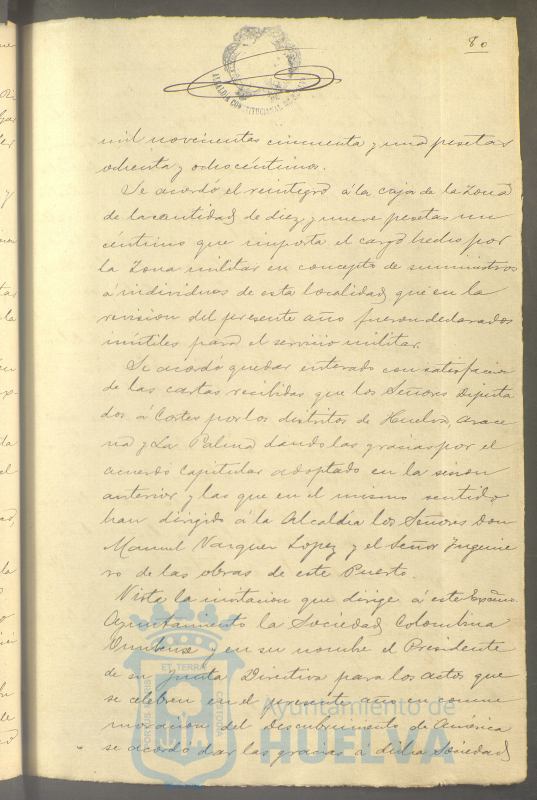 80
ALCALDIA CONSTITUCIONAL DE
mil novecientas cincuenta y una pesetas
ochenta y ocho céntimos.
Se acordó el reintegro á la caja de la Zona
de la cantidad de diez y nueve pesetas un
céntimo que importa el cargo hecho por
la Zona militar en concepto de suministros
á individuos de esta localidad que en la
revision del presente año fueron declarados
inútiles para el servicio militar.
Se acordó quedar enterado con satisfaccion
de las cartas recibidas que los Señores Diputa
dos á Cortes por los distritos de Huelva, Arace
na y La Palma dando las gracias por el
acuerdo capitular adoptado en la sesion
anterior y las que en el mismo sentido
han dirigido á la Alcaldía los Señores Don
Manuel Vazquez Lopez y el Señor Ingenie
ro de las obras de este Puerto.
Vista la invitacion que dirige á este Excmo.
Ayuntamiento la Sociedad Colombina
Onubense y en su nombre el Presidente
de su Junta Directiva para los actos que
se celebren en el presente año en conme
moracion del descubrimiento de América
se acordó dar las gracias á dicha Sociedad
Ayuntamiento de
HUELVA
PORTUS MARIS ET TERRAE CUSTODIA